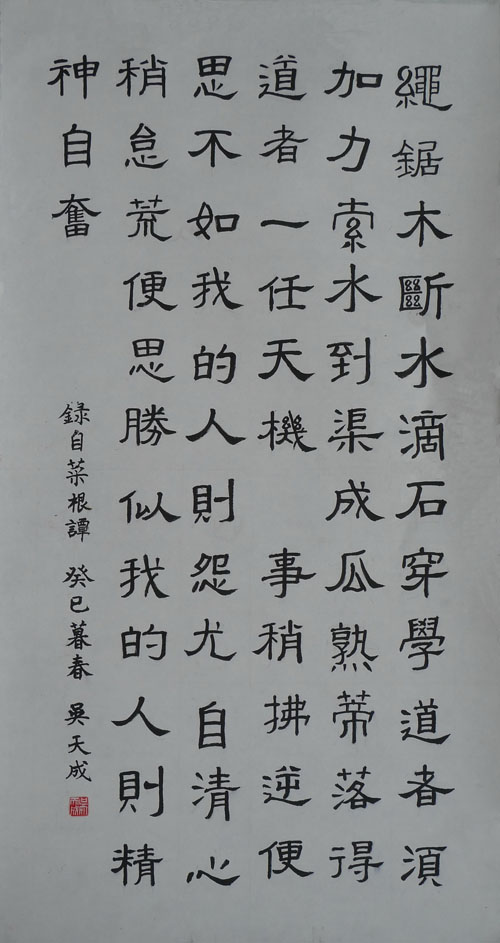 繩鋸木斷水滴石穿學道者須
加力索水到渠成瓜熟蒂落得
道者一任天機 事稍拂逆便
思不如我的人則怨尤自清心
稍怠荒便思勝似我的人則精
神自奮
錄自菜根譚 癸巳暮春 吳天成